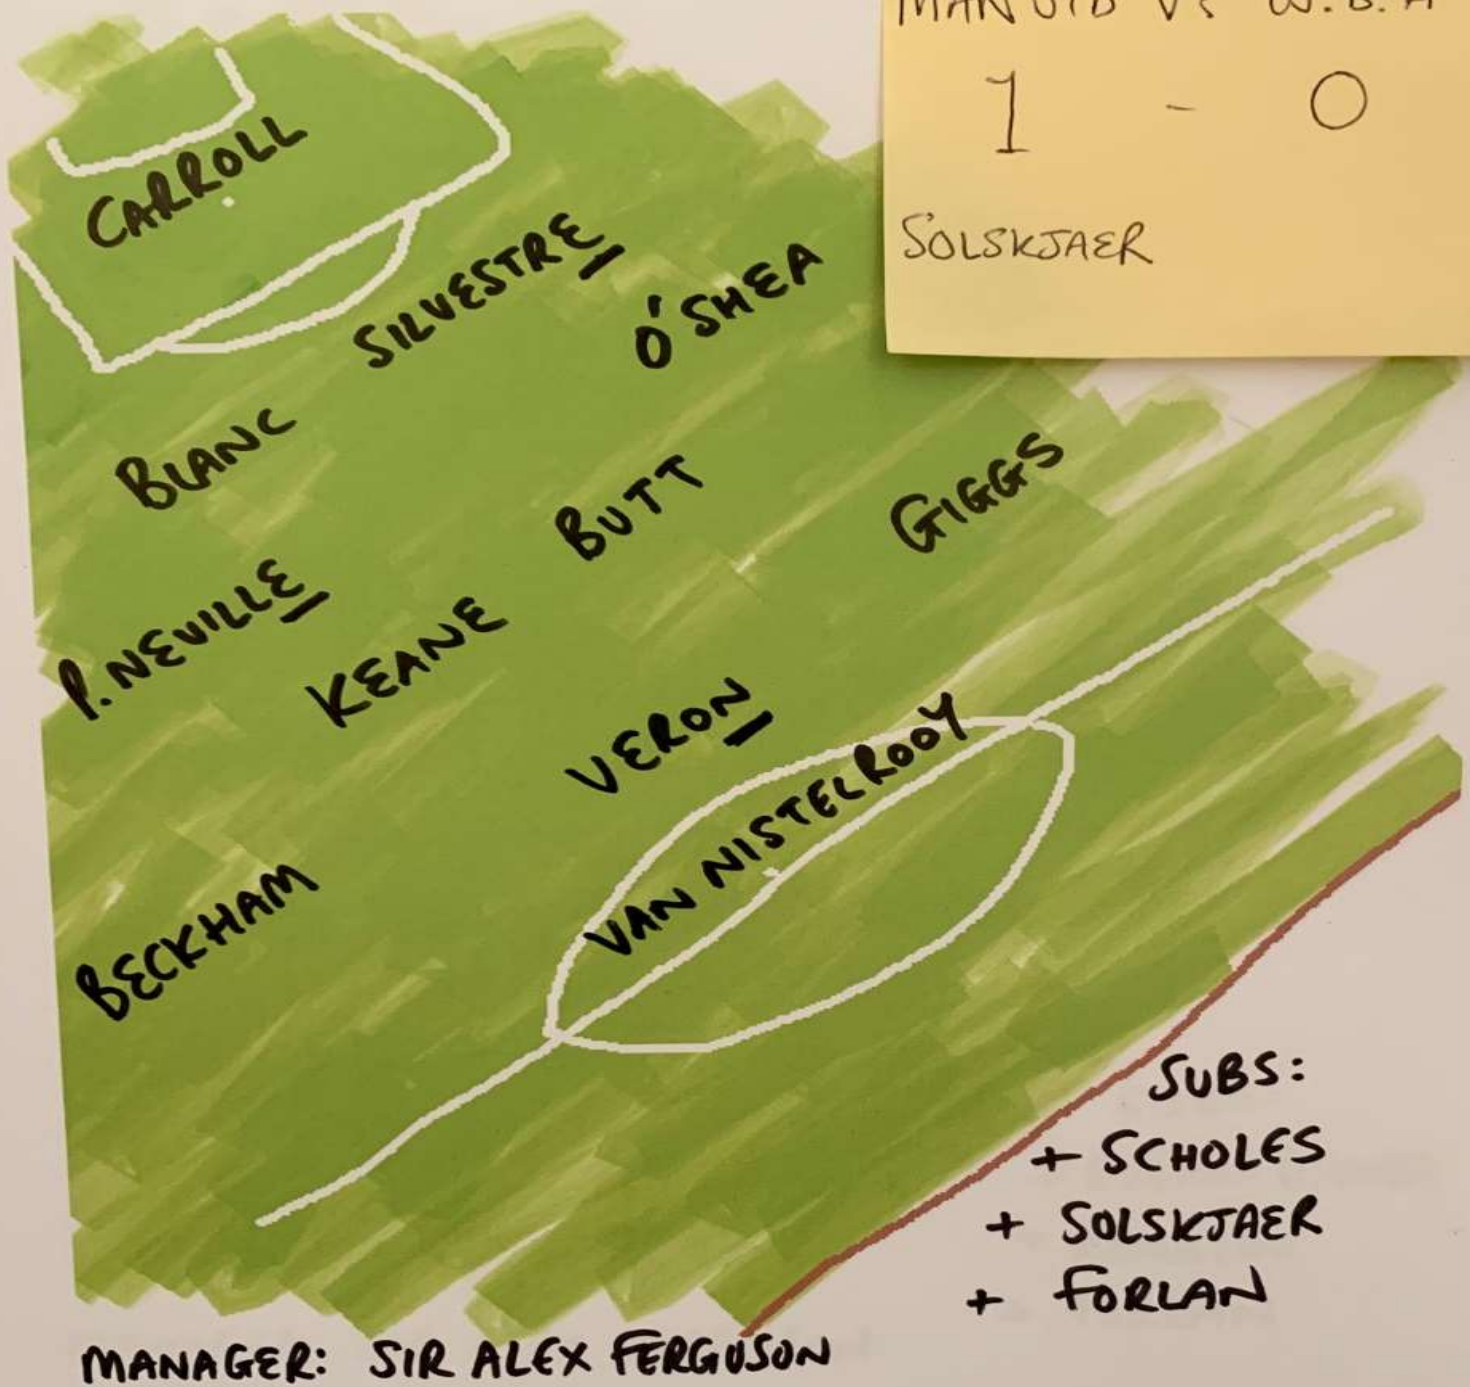 MAN UTD VS W.B.A
1 - 0
SOLSKJAER
CARROLL
SILVESTRE
O'SHEA
BLANC
BUTT
GIGGS
P. NEVILLE
KEANE
VERON
VAN NISTELROOY
BECKHAM
SUBS:
+ SCHOLES
+ SOLSKJAER
+ FORLAN
MANAGER: SIR ALEX FERGUSON